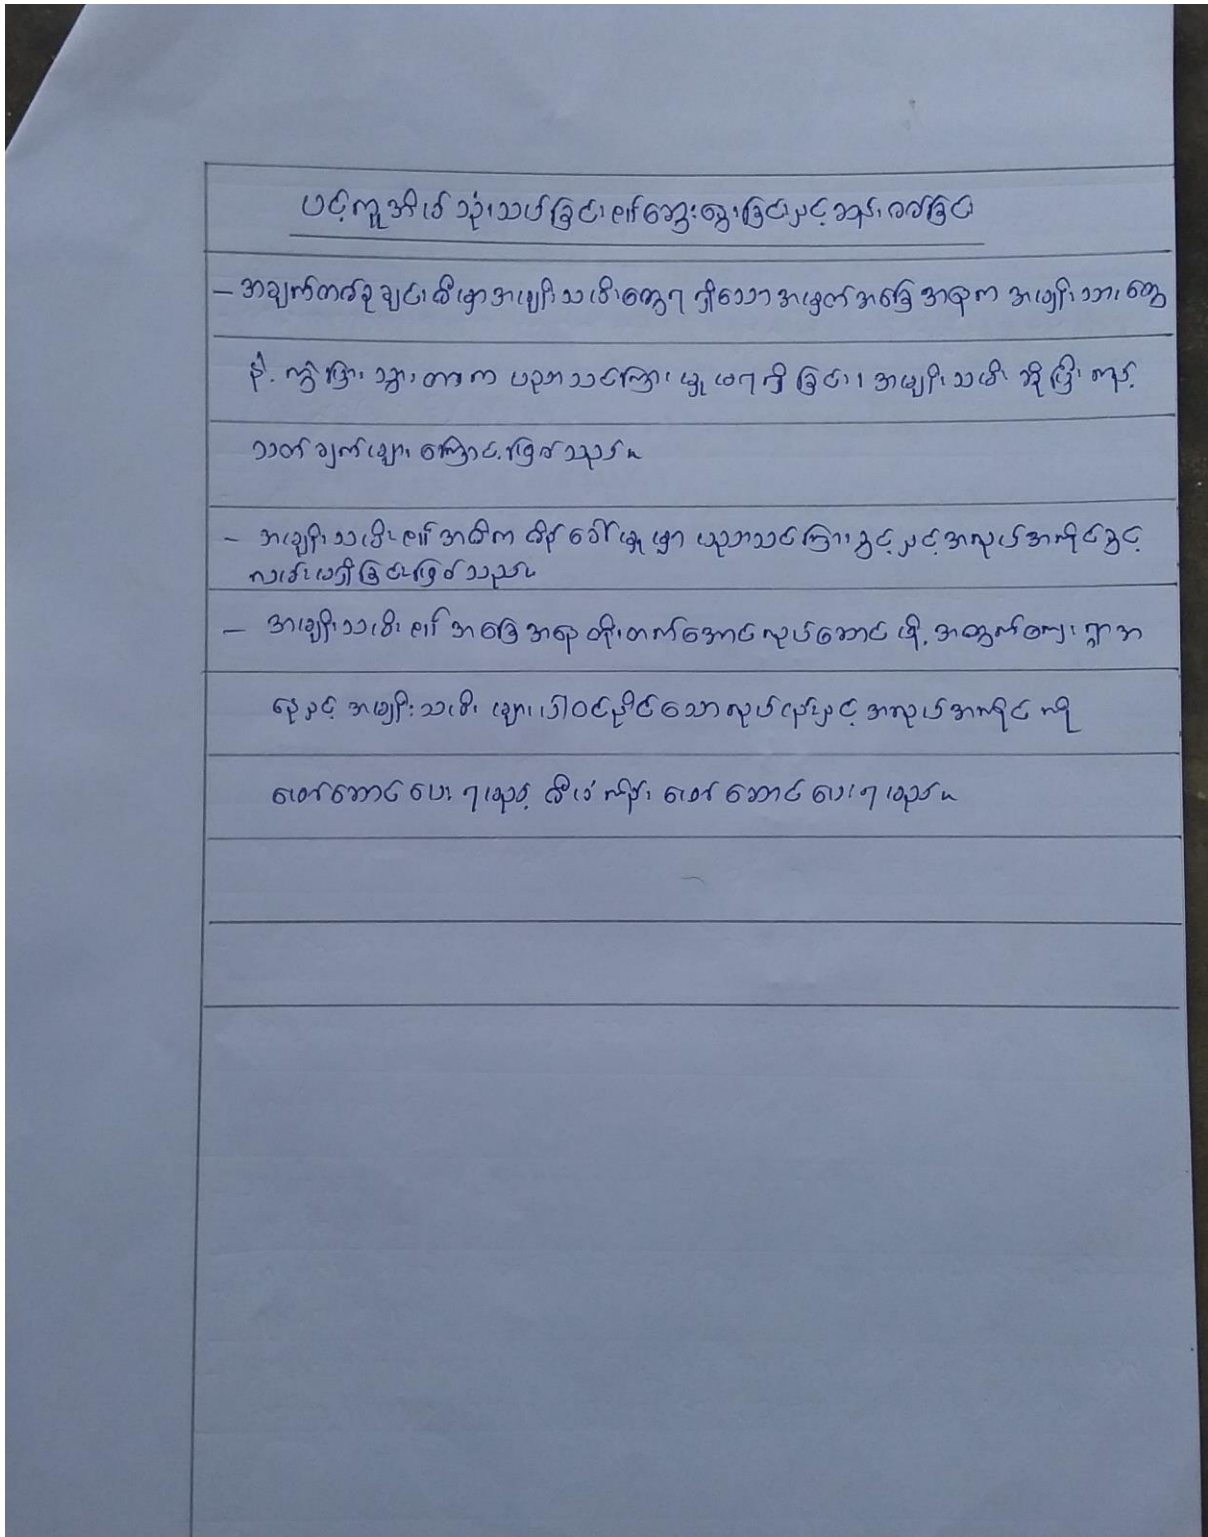 ပင့်ကူအိမ်သုံးသပ်ခြင်း ၏ဆွေးနွေးခြင်းနှင့်ဆန်းစစ်ခြင်း
– အချက်တစ်ခုချင်းစီမှာအမျိုးသမီးတွေရ ရှိသောအမှတ်အခြေအနေက အမျိုးသားတွေ
နဲ့ ကွဲပြားသွားတာက ပညာသင်ကြားမှုမရရှိခြင်း၊ အမျိုးသမီး ဆိုပြီး ကန့်
သတ်ချက်များ ကြောင့်ဖြစ်သည်။
– အမျိုးသမီး၏ အဓိက စိန်ခေါ်မှုမှာ ပညာသင်ကြားခွင့်နှင့်အလုပ်အကိုင်ခွင့်
လမ်းမရှိခြင်းဖြစ်သည်။
– အမျိုးသမီး၏ အခြေအနေတိုးတက်အောင်လုပ်ဆောင်ဖို့ အတွက်ကျေးရွာအ
နေနှင့် အမျိုးသမီးများပါဝင်နိုင်သောလုပ်ငန်းနှင့်အလုပ်အကိုင်ကို
ဖော်ဆောင်ပေးရမည့် စီမံကိန်း ဖော်ဆောင်ပေးရမည်။